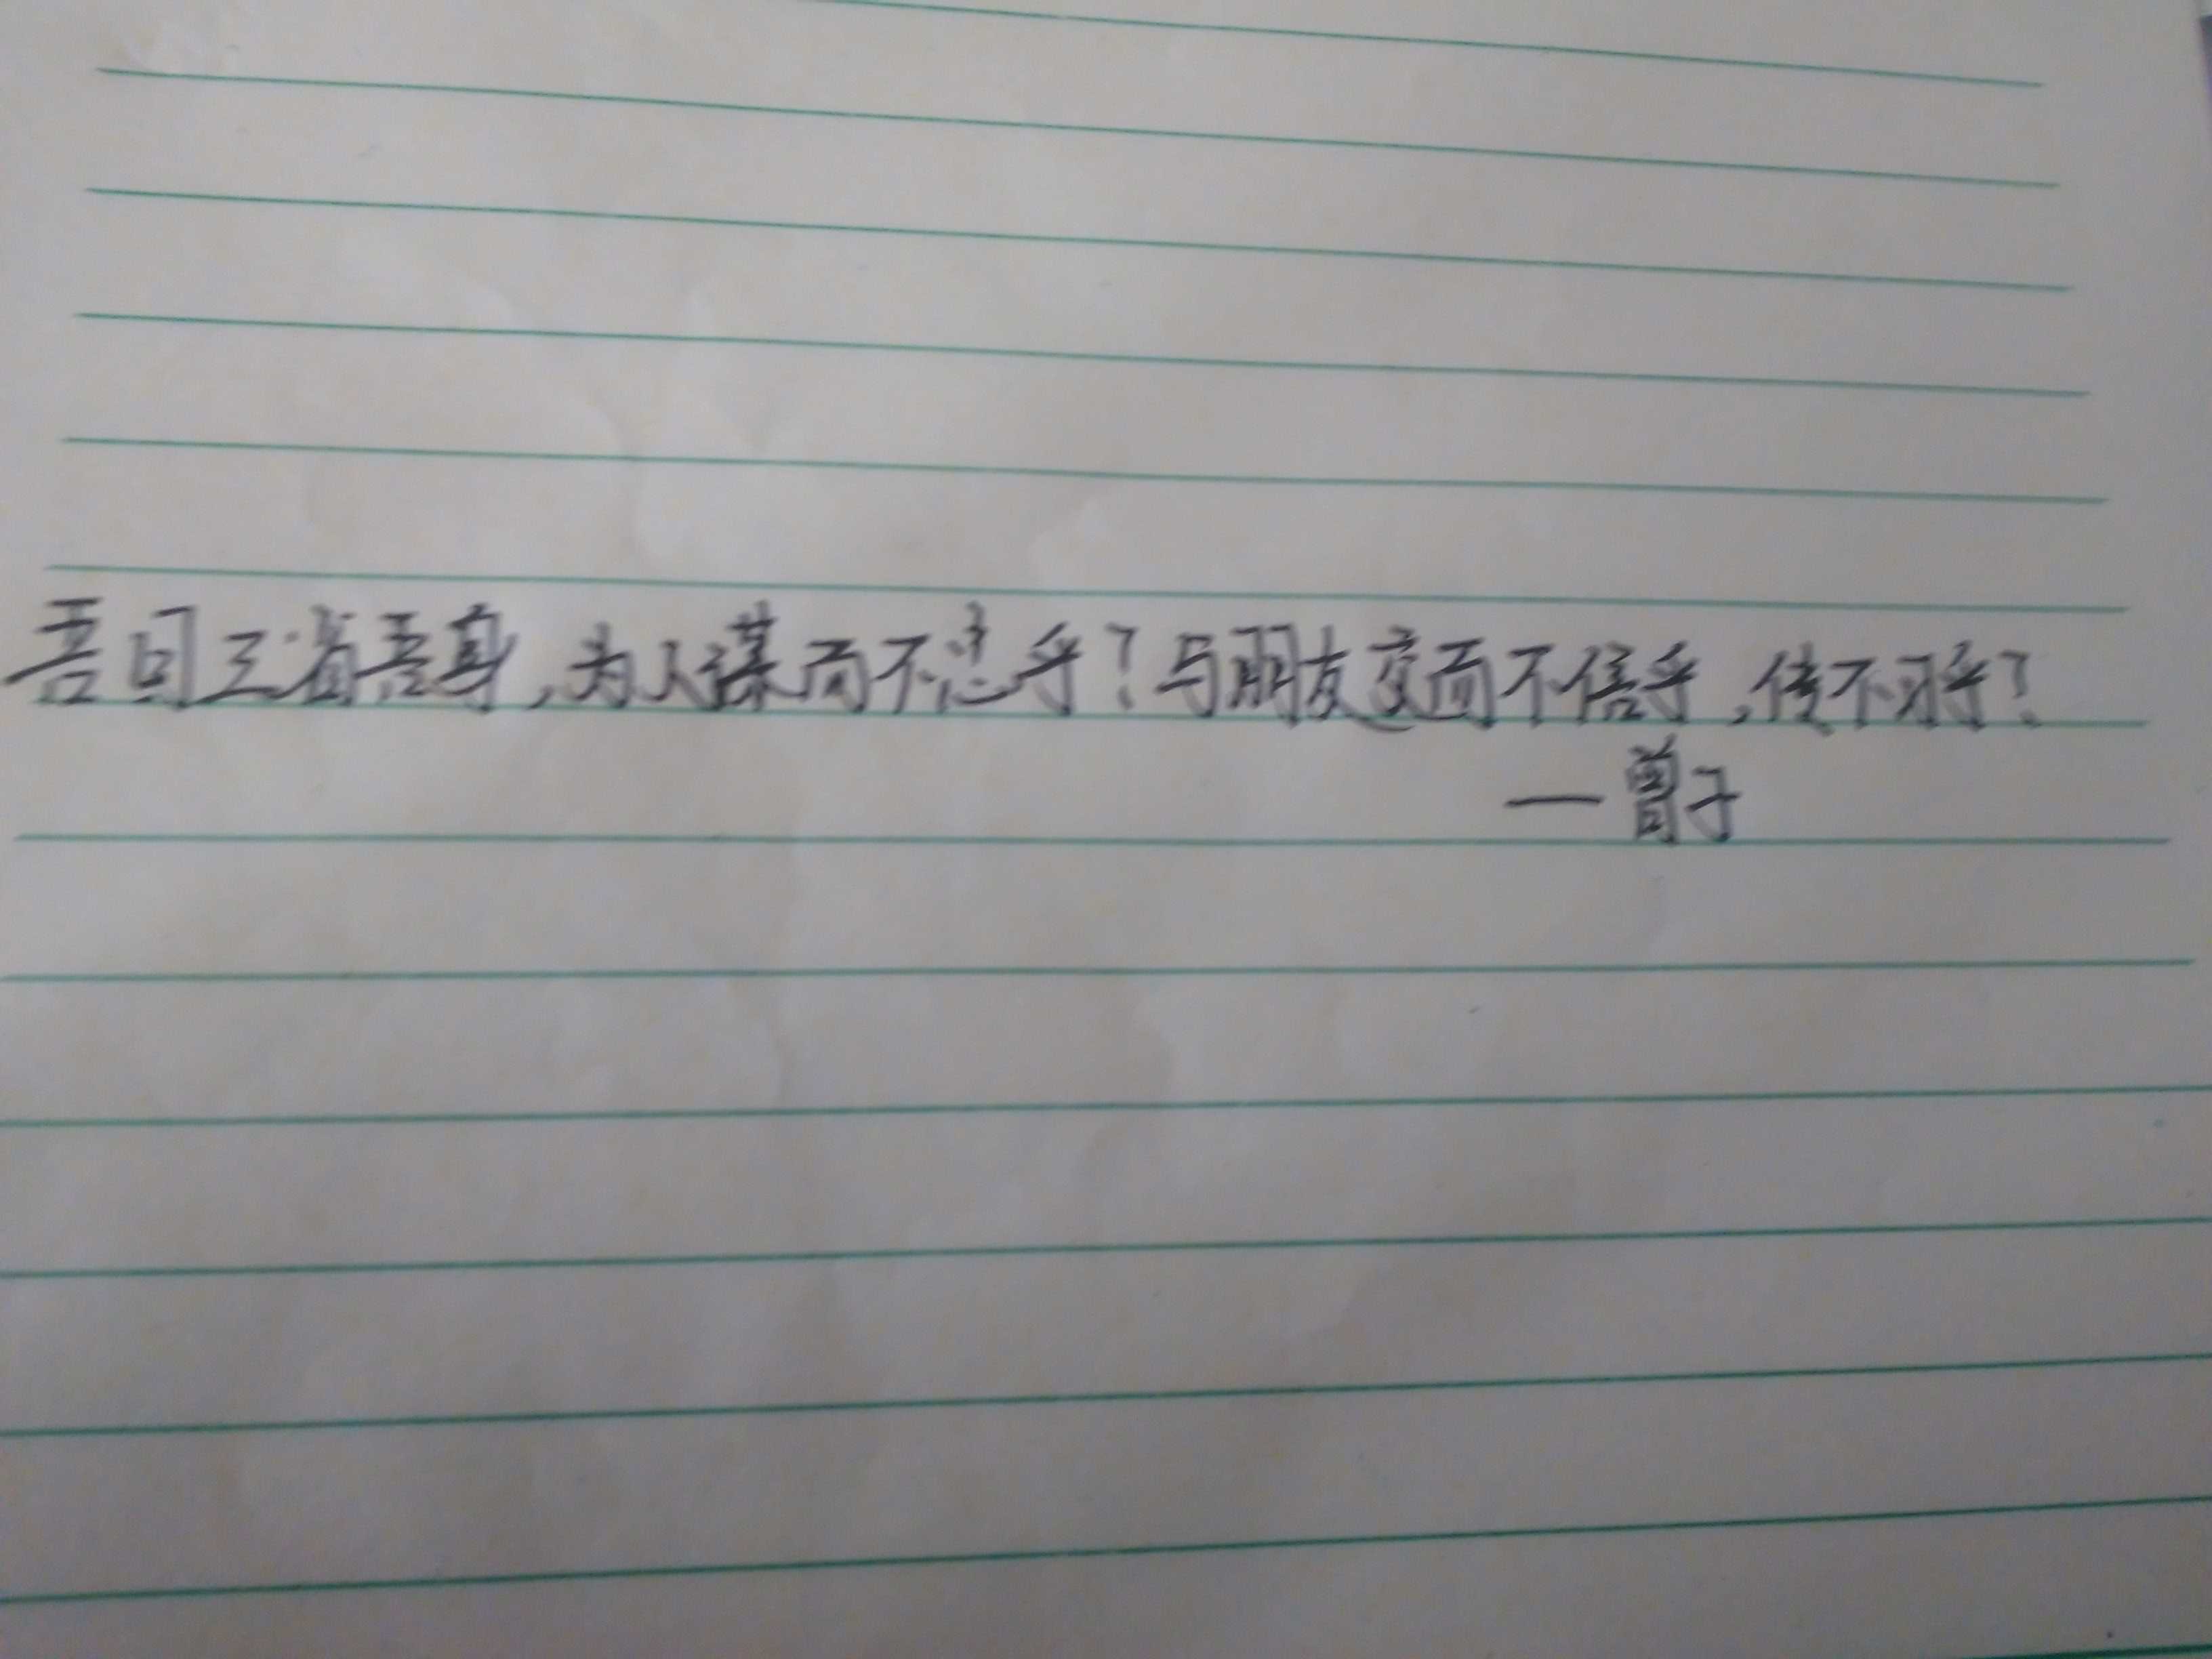 吾日三省吾身,为人谋而不忠乎?与朋友交而不信乎,传不习乎?
—曾子